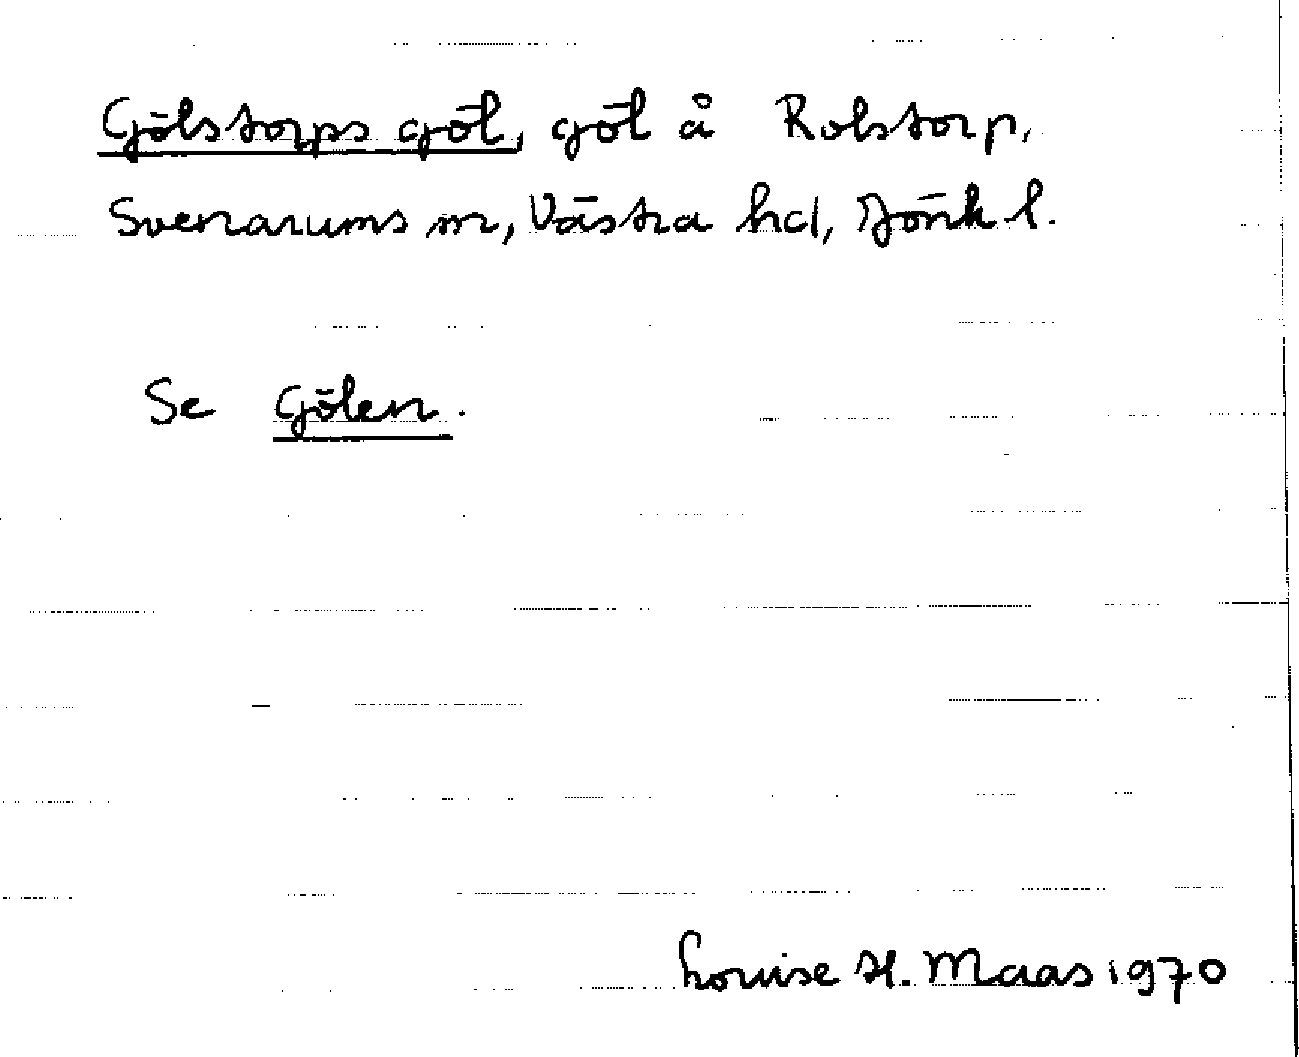 Gölstorps göl, göl å Rolstorp,
Svenarums sn, Västra hd, Jönk l.
Se Gölen.
Louise H. Maas 1970